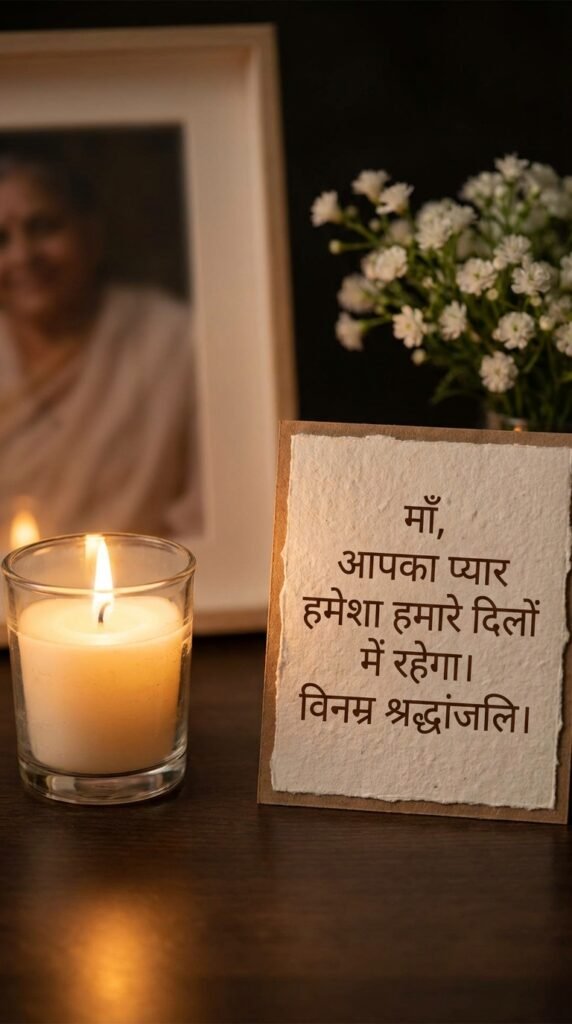 माँ,
आपका प्यार
हमेशा हमारे दिलों
में रहेगा।
विनम्र श्रद्धांजलि।